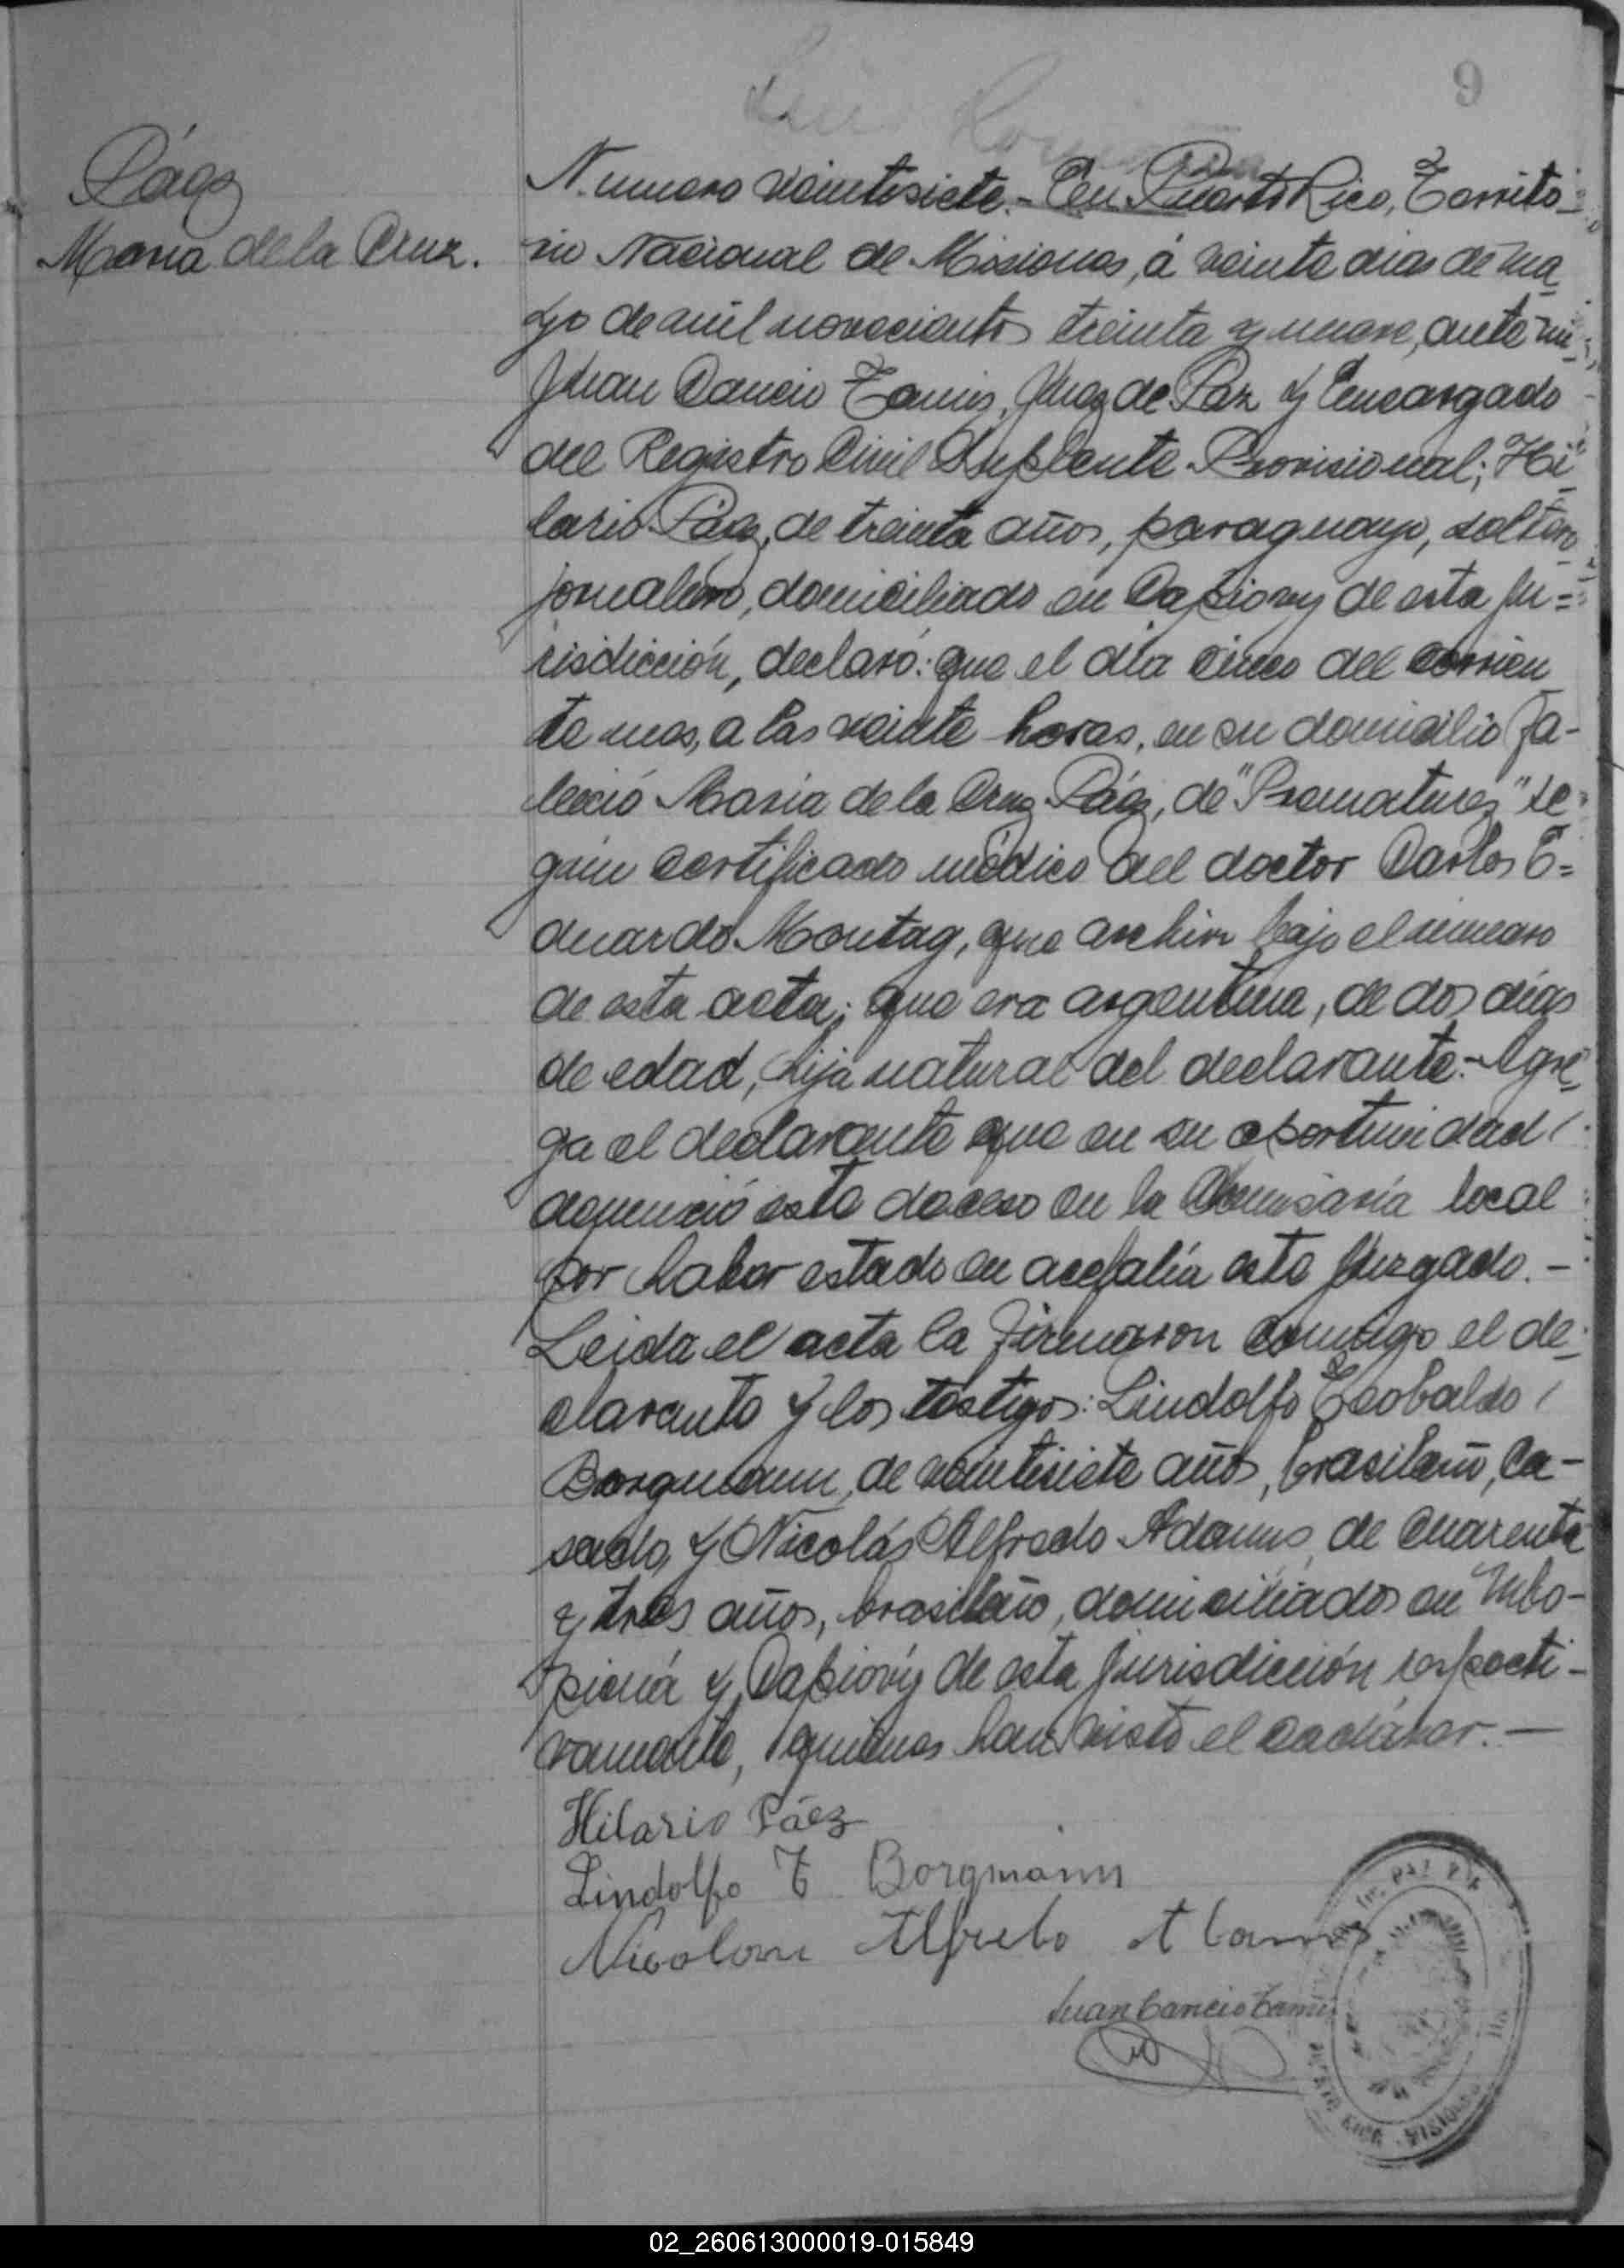 9
Páez
María de la Cruz.
Numero veintisiete.- En Puerto Rico, Territo-
rio Nacional de Misiones, á veinte dias de ma-
yo de mil novecientos treinta y nueve, ante mi
Juan Cancio Tamis, Juez de Paz y Encargado
del Registro Civil Suplente Provisional; Hi-
lario Páez, de treinta años, paraguayo, soltero
jornalero, domiciliado en Capiovy de esta ju=
risdicción, declaró: que el día cinco del corrien
te mes, a las veinte horas, en su domicilio fa-
lleció María de la Cruz Páez, de "Prematurez" se-
gún certificado médico del doctor Carlos E=
duardo Montag, que archivo bajo el número
de esta acta; que era argentina, de dos días
de edad, hija natural del declarante.- Agre-
ga el declarante que en su oportunidad
denunció este deceso en la Comisaría local
por haber estado en acefalía este Juzgado.-
Leida el acta la firmaron conmigo el de-
clarante y los testigos: Lindolfo Teobaldo
Borgmann, de veintisiete años, brasileño, ca-
sado, y Nicolás Alfredo Adams, de cuarenta
y tres años, brasileño, domiciliados en Mbo-
picuá y Capiovy de esta jurisdicción respecti-
vamente, quienes han visto el cadáver.-
Hilario Páez
Lindolfo T Borgmann
Alfredo Adams
Juan Cancio Tamis
PUERTO RICO - MISIONES
02_260613000019-015849